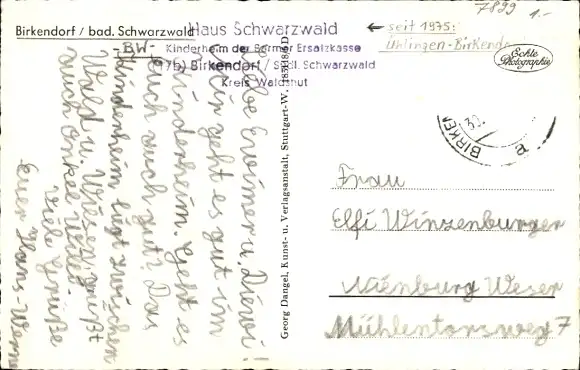 Birkendorf / bad. Schwarzwald
Haus Schwarzwald
-BW-
Kinderheim der Barmer Ersatzkasse
(17b) Birkendorf / Südl. Schwarzwald
Kreis Waldshut
← seit 1975:
Ühlingen-Birkend
7899
1.-
Echte
Photographie
BIRKEN
30.
Georg Dangel, Kunst- u. Verlagsanstalt, Stuttgart-W.
u.
geht es gut im
Kinderheim. Geht es
euch auch gut? Das
Kinderheim liegt zwischen
Wald u. Wiesen. Grüßt
auch Onkel
Viele Grüße
Euer Hans-Werner
Frau
Elfi Winzenburger
Nienburg Weser
Mühlentorsweg 7